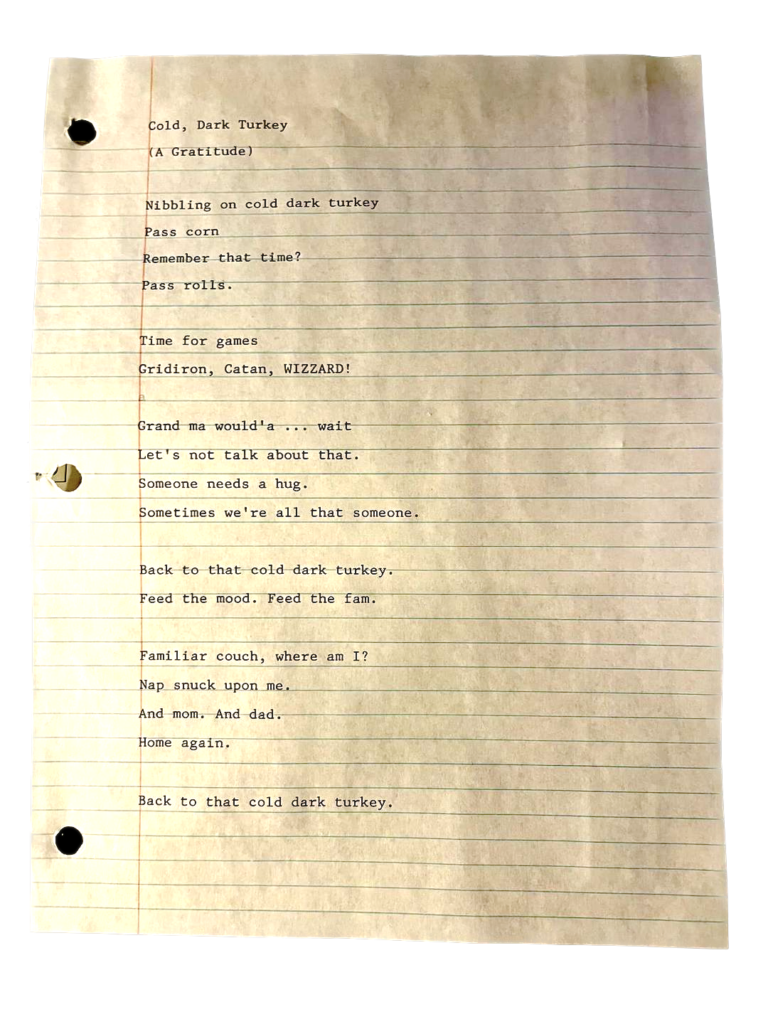 Cold, Dark Turkey
(A Gratitude)
Nibbling on cold dark turkey
Pass corn
Remember that time?
Pass rolls.
Time for games
Gridiron, Catan, WIZZARD!
a
Grand ma would'a ... wait
Let's not talk about that.
Someone needs a hug.
Sometimes we're all that someone.
Back to that cold dark turkey.
Feed the mood. Feed the fam.
Familiar couch, where am I?
Nap snuck upon me.
And mom. And dad.
Home again.
Back to that cold dark turkey.